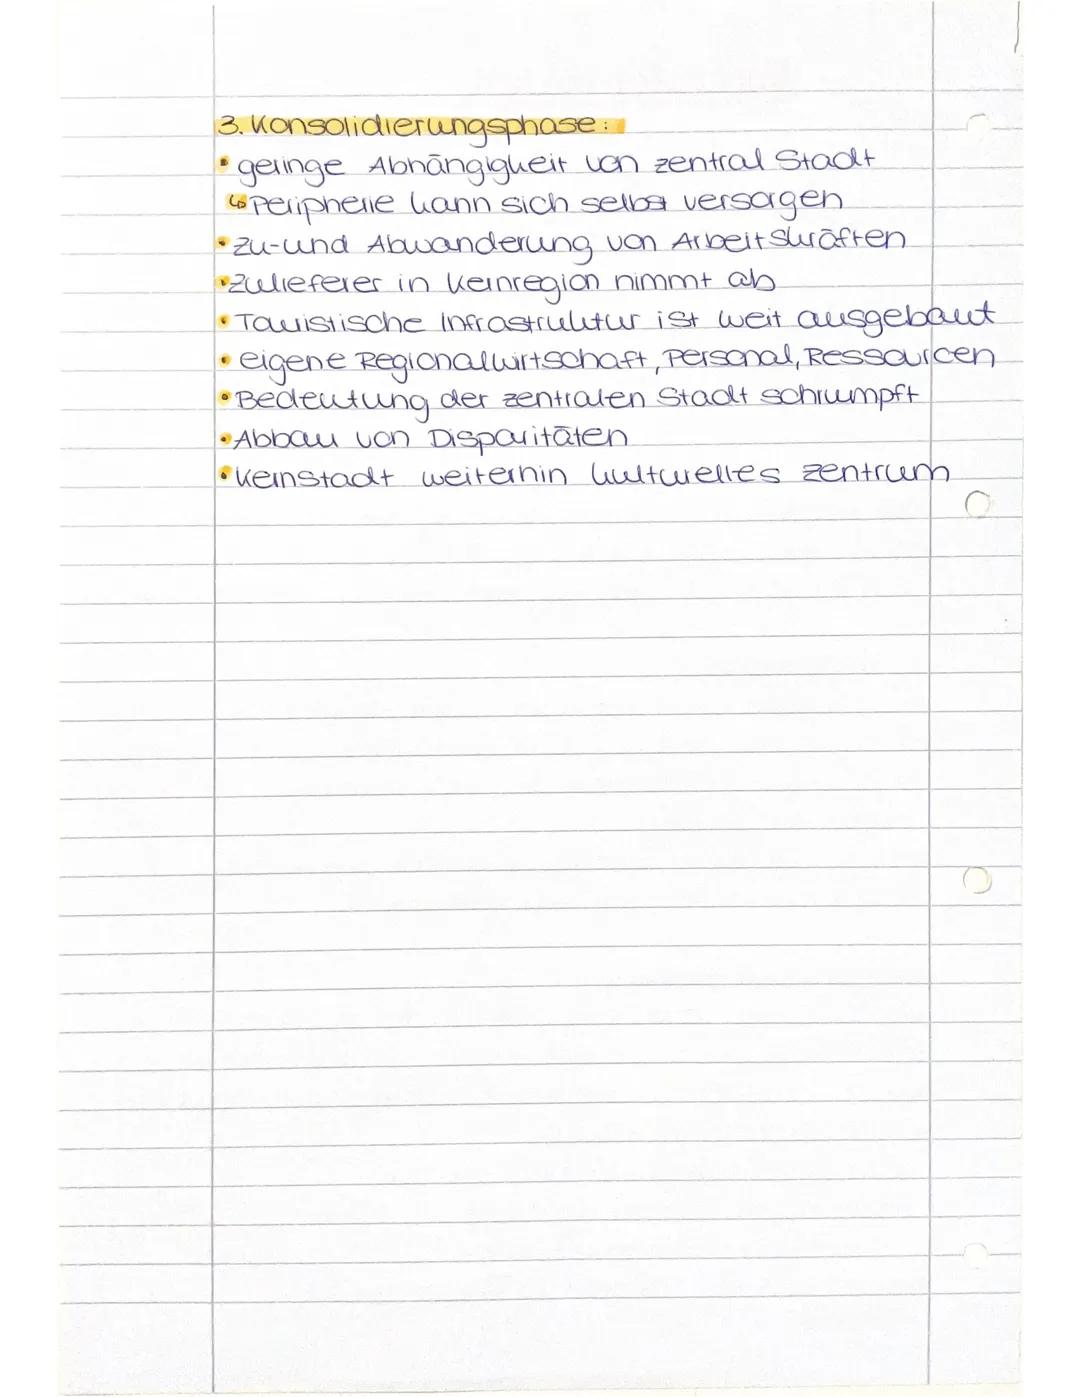 3. Konsolidierungsphase:
• geringe Abhängigkeit von zentral Stadt
↳ Peripherie kann sich selbst versorgen
• Zu- und Abwanderung von Arbeitskräften
• Zulieferer in Kernregion nimmt ab
• Touristische Infrastruktur ist weit ausgebaut
• eigene Regionalwirtschaft, Personal, Ressourcen
• Bedeutung der zentralen Stadt schrumpft
• Abbau von Disparitäten
• Kernstadt weiterhin kulturelles zentrum